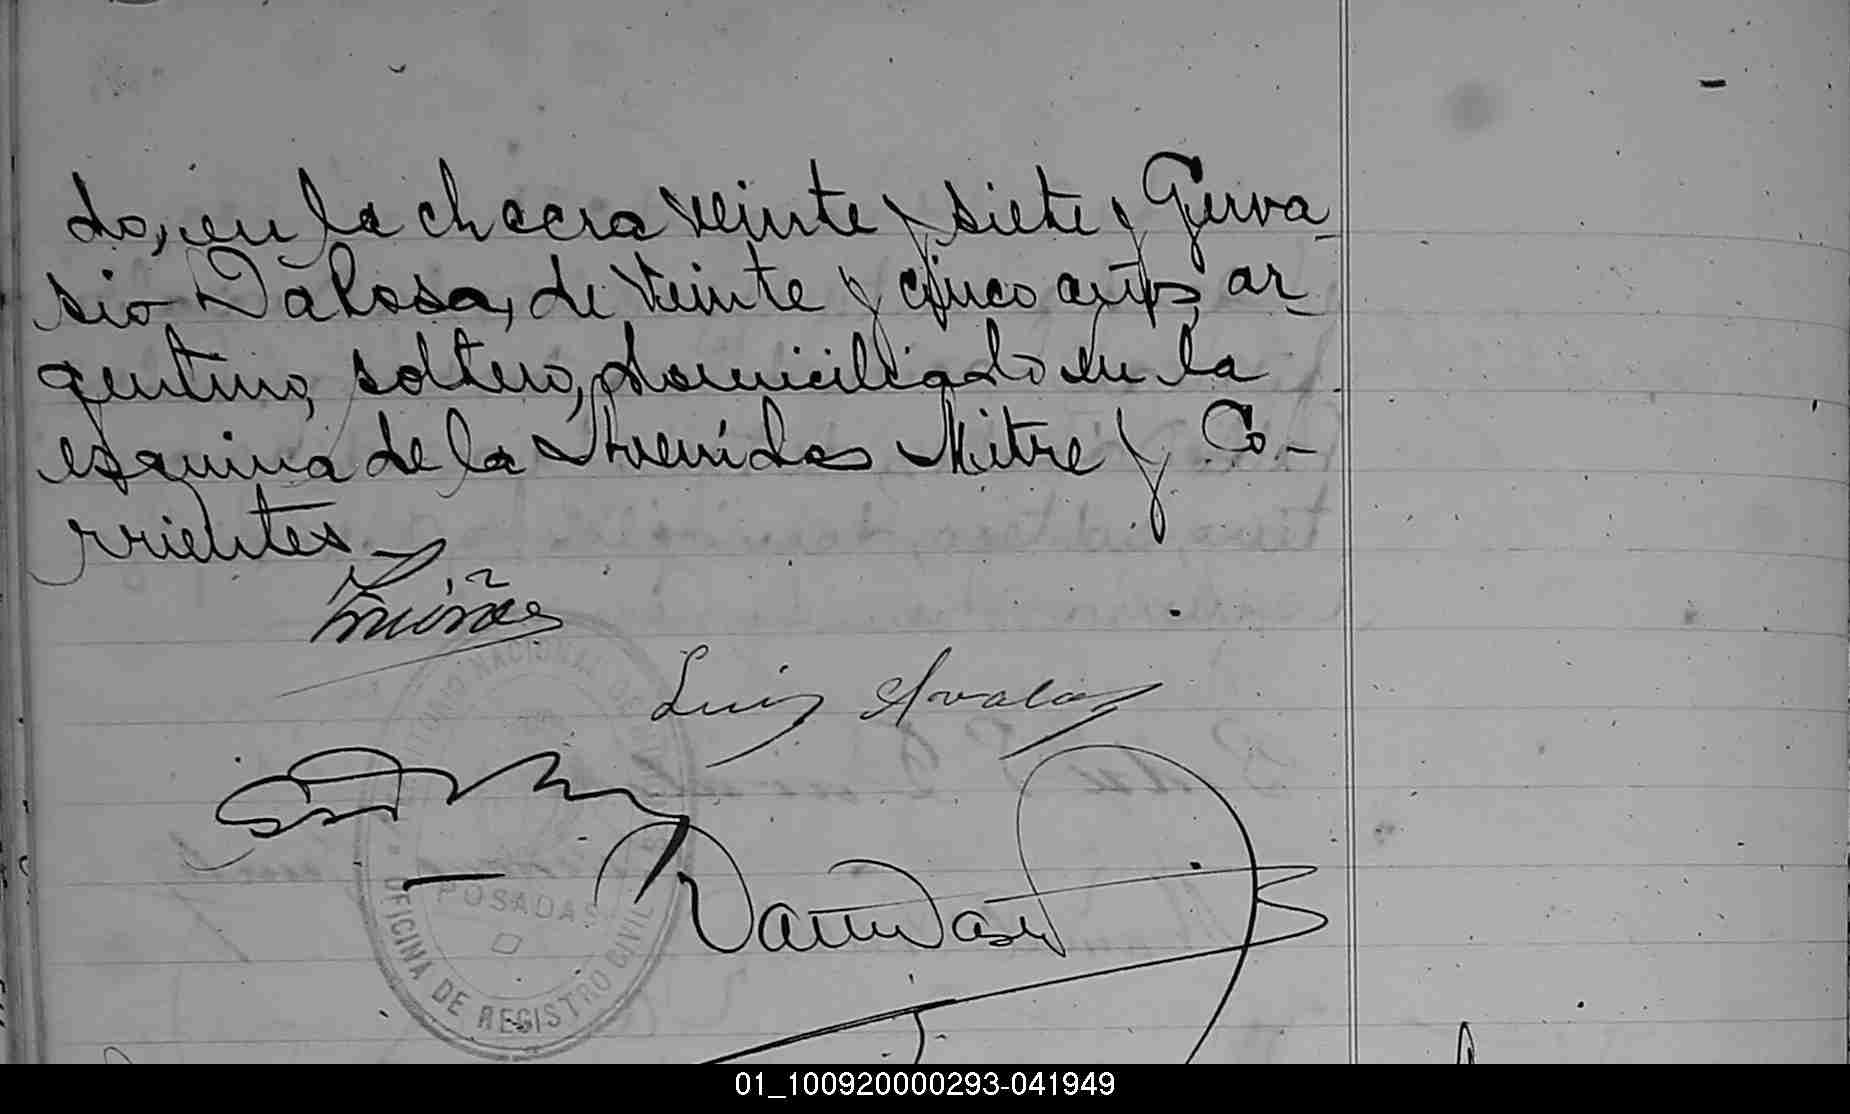 do, en la chacra veinte y siete y Gerva-
sio Dalosa, de veinte y cinco años, ar-
gentino, soltero, domiciliado en la
esquina de la Avenidas Mitre y Co-
rrientes.
Luis Avalos
TORIO NACIONAL DE MISIONES
POSADAS
OFICINA DE REGISTRO CIVIL
01_100920000293-041949